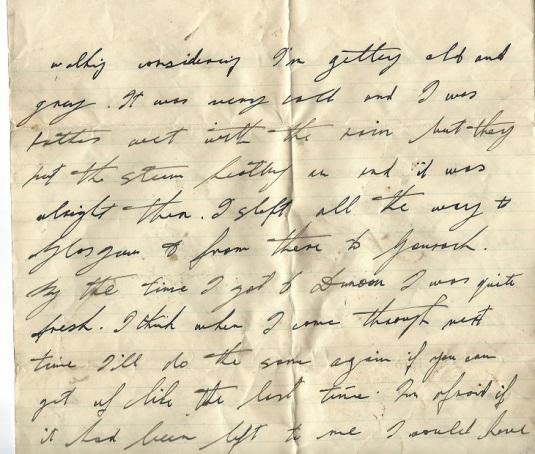 walking considering I'm getting old and
gray. It was very cold and I was
rather wet with the rain but they
put the steam heating on and it was
alright then. I slept all the way to
Glasgow & from there to Gourock.
By the time I got to Dunoon I was quite
fresh. I think when I come through next
time I'll do the same again if you can
get up like the last time. I'm afraid if
it had been left to me I would have